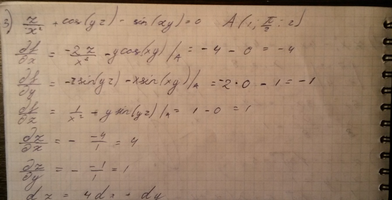 3) z/x² + cos(yz) - sin(xy) = 0 A(1, π/2, 2)
∂f/∂x = -2z/x³ - y cos(xy) |_A = -4 - 0 = -4
∂f/∂y = -z sin(yz) - x sin(xy) |_A = -2·0 - 1 = -1
∂f/∂z = 1/x² + y sin(yz) |_A = 1 - 0 = 1
∂z/∂x = - -4/1 = 4
∂z/∂y = - -1/1 = 1
dz = 4dx + dy